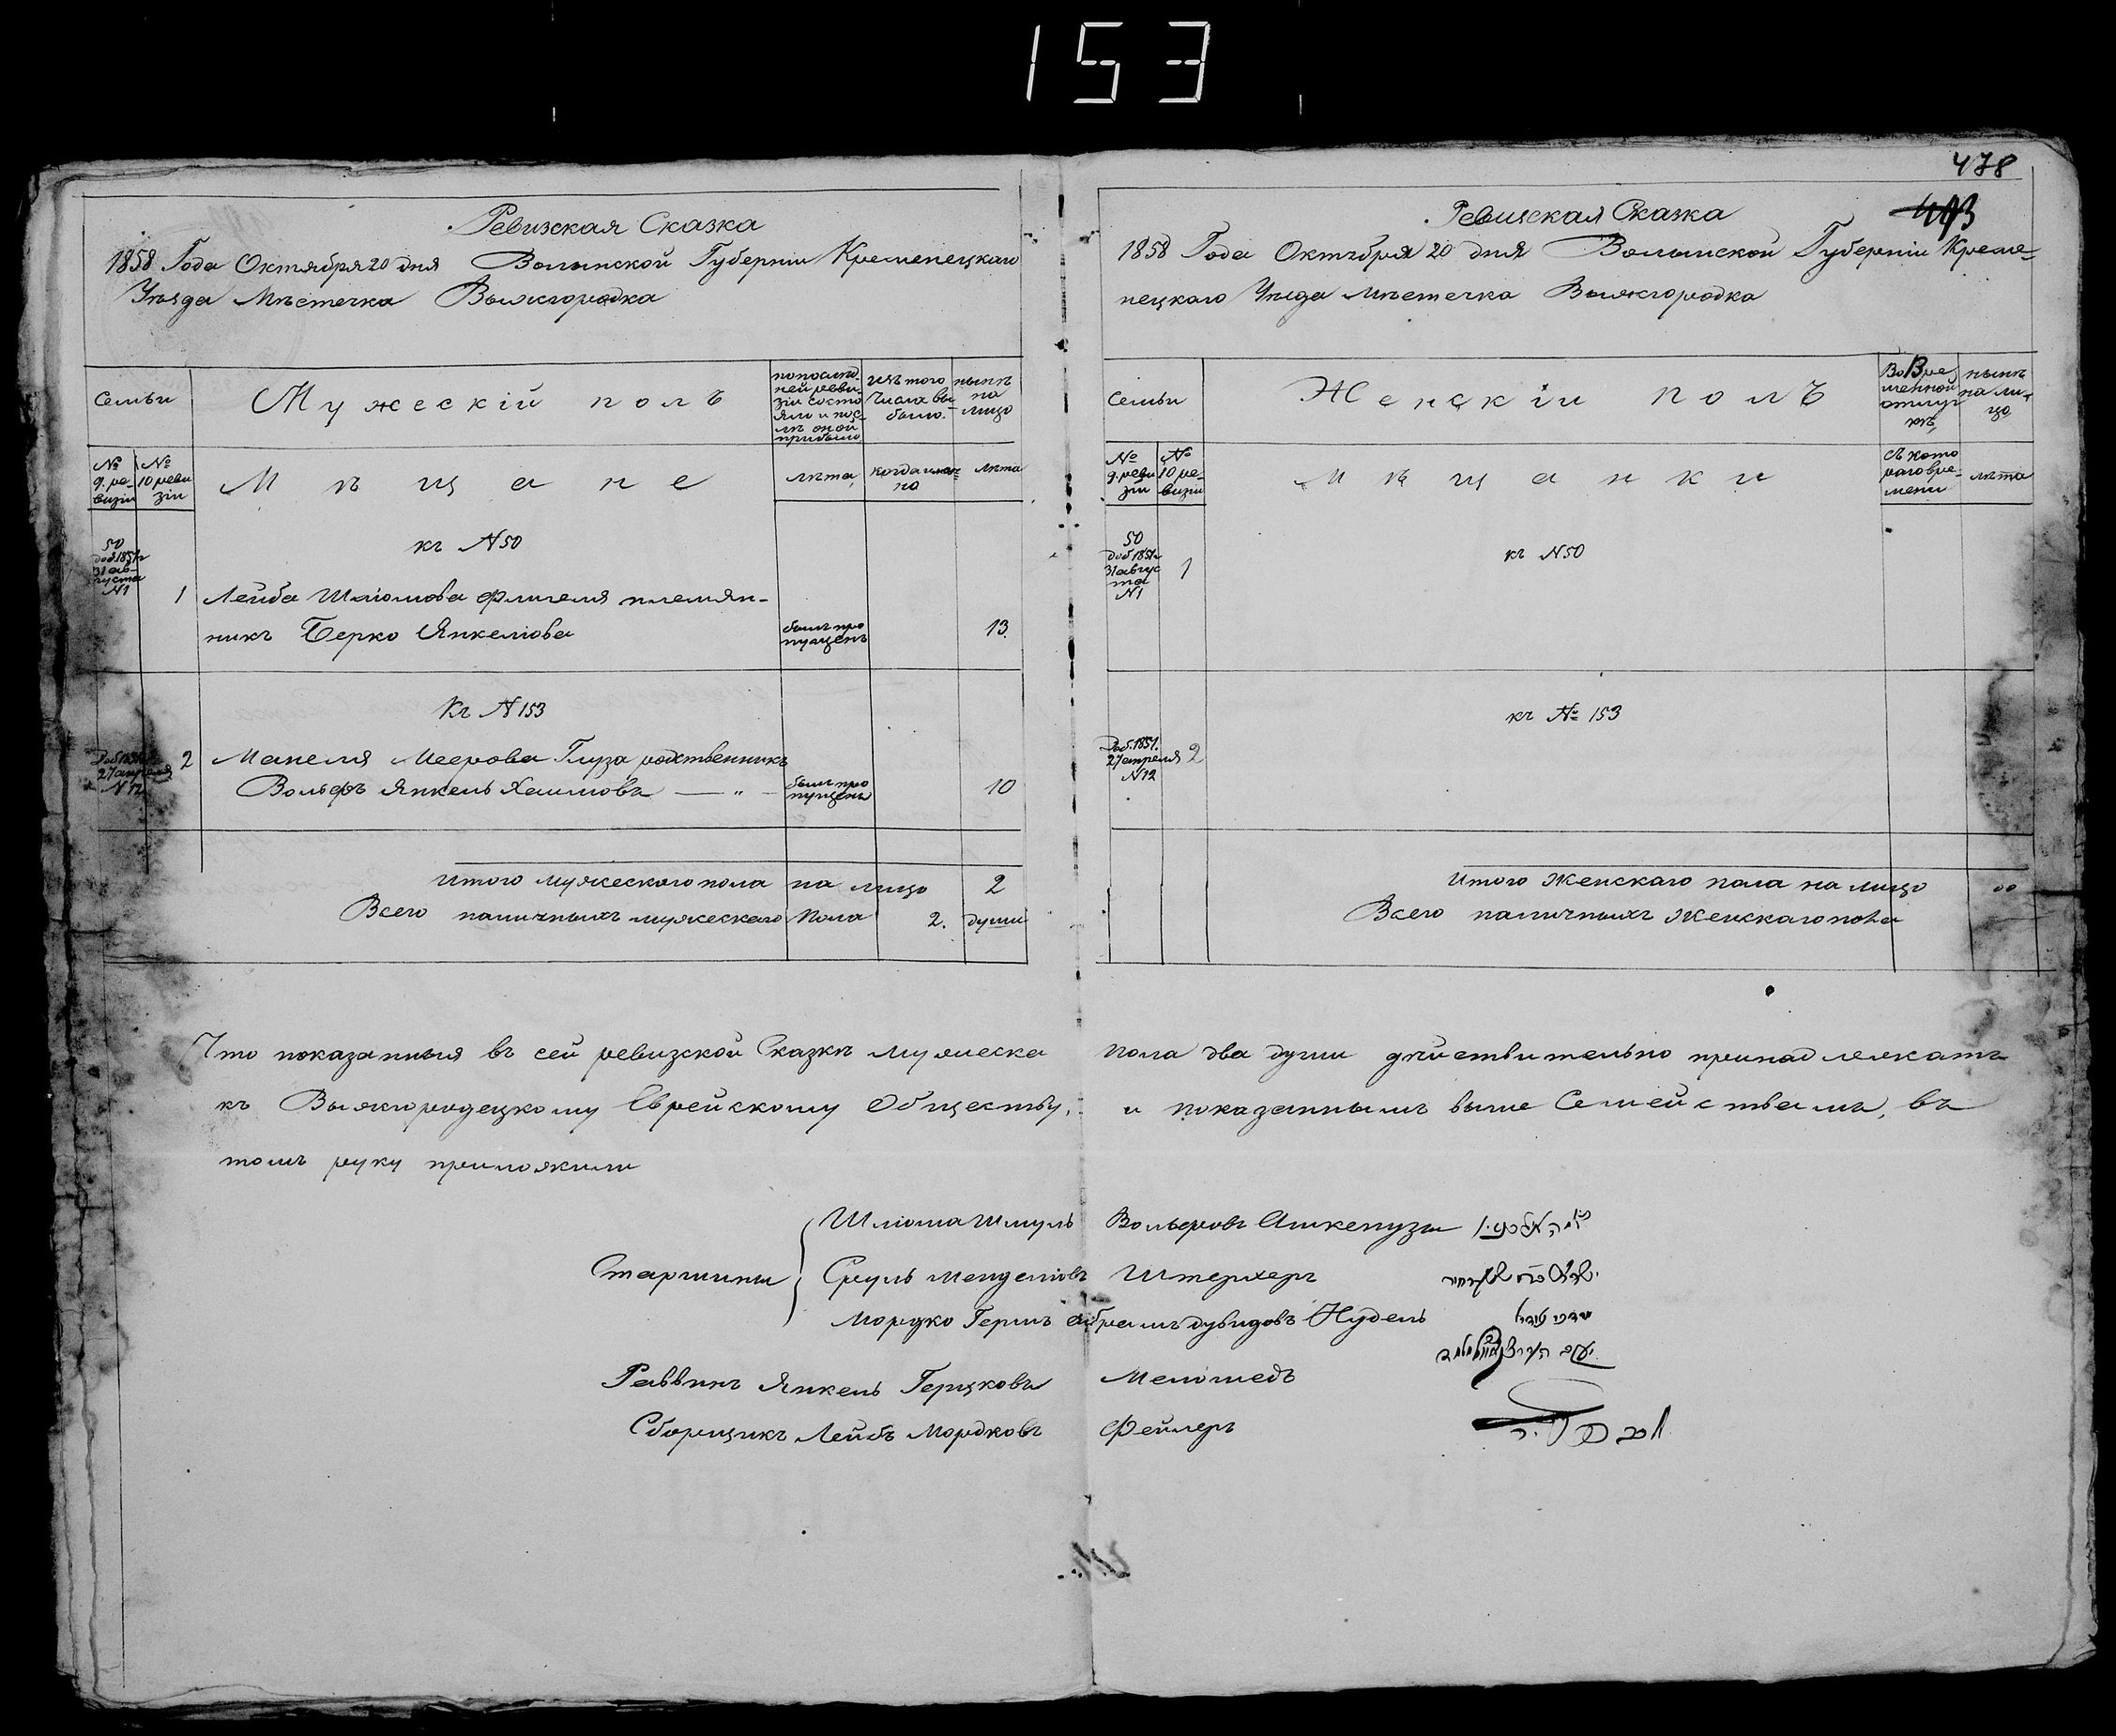 153
478
493
Ревизская Сказка
1858 Года Октября 20 дня Волынской Губерніи Кременецкаго
Уѣзда Мѣстечка Выжгородка
Семьи
Мужескій полъ
по послѣд-
ней реви-
зіи состо
яло и пос-
лѣ оной
прибыло
изъ того
числа вы
было.
нынѣ
на
лицо
№
9. ре-
визіи
№
10 реви
зіи
Мѣщане
лѣта
когда имен-
но
лѣта
50
доб. 1851 г
31 ав-
густа
№1
къ №50
1
Лейба Шліомова Флигеля племян-
никъ Берко Янкеліовъ
былъ про
пущенъ
13.
Къ №153
Доб. 1851.
27 апреля
№12
2
Манеля Меерова Глуза родственникъ
Вольфъ Янкель Хаимовъ — " —
былъ про
пущенъ
10
Итого мужескаго пола на лицо 2
Всего наличныхъ мужескаго пола 2. души
Ревизская Сказка
1858 Года Октября 20 дня Волынской Губерніи Креме-
нецкаго Уѣзда Мѣстечка Выжгородка
Семьи
Женскій полъ
Во Вре
менной
отлуч
кѣ
нынѣ
на ли-
цо
№
9. реви
зіи
№
10 ре-
визіи
Мѣщанки
съ кото
раго вре-
мени
лѣта
50
доб. 1851 г
31 авгус
та
№1
1
къ №50
къ № 153
Доб. 1851.
27 апреля
№12
2
Итого Женскаго пола на лицо "
Всего наличныхъ Женскаго пола
Что показанныя въ сей ревизской Сказкѣ мужеска пола два души дѣйствительно принадлежатъ
къ Выжгородецкому Еврейскому Обществу, и показаннымъ выше Семействамъ, въ
томъ руку приложили
Старшины
Шліома Шмуль Вольфовъ Ашкенузы
Сруль Менделіовъ Штерхеръ
Мордко Гершъ Абрамъ Дувидовъ Нудель
Раввинъ Янкель Герцковъ Меломедъ
Сборщикъ Лейбъ Мордковъ Фейлеръ